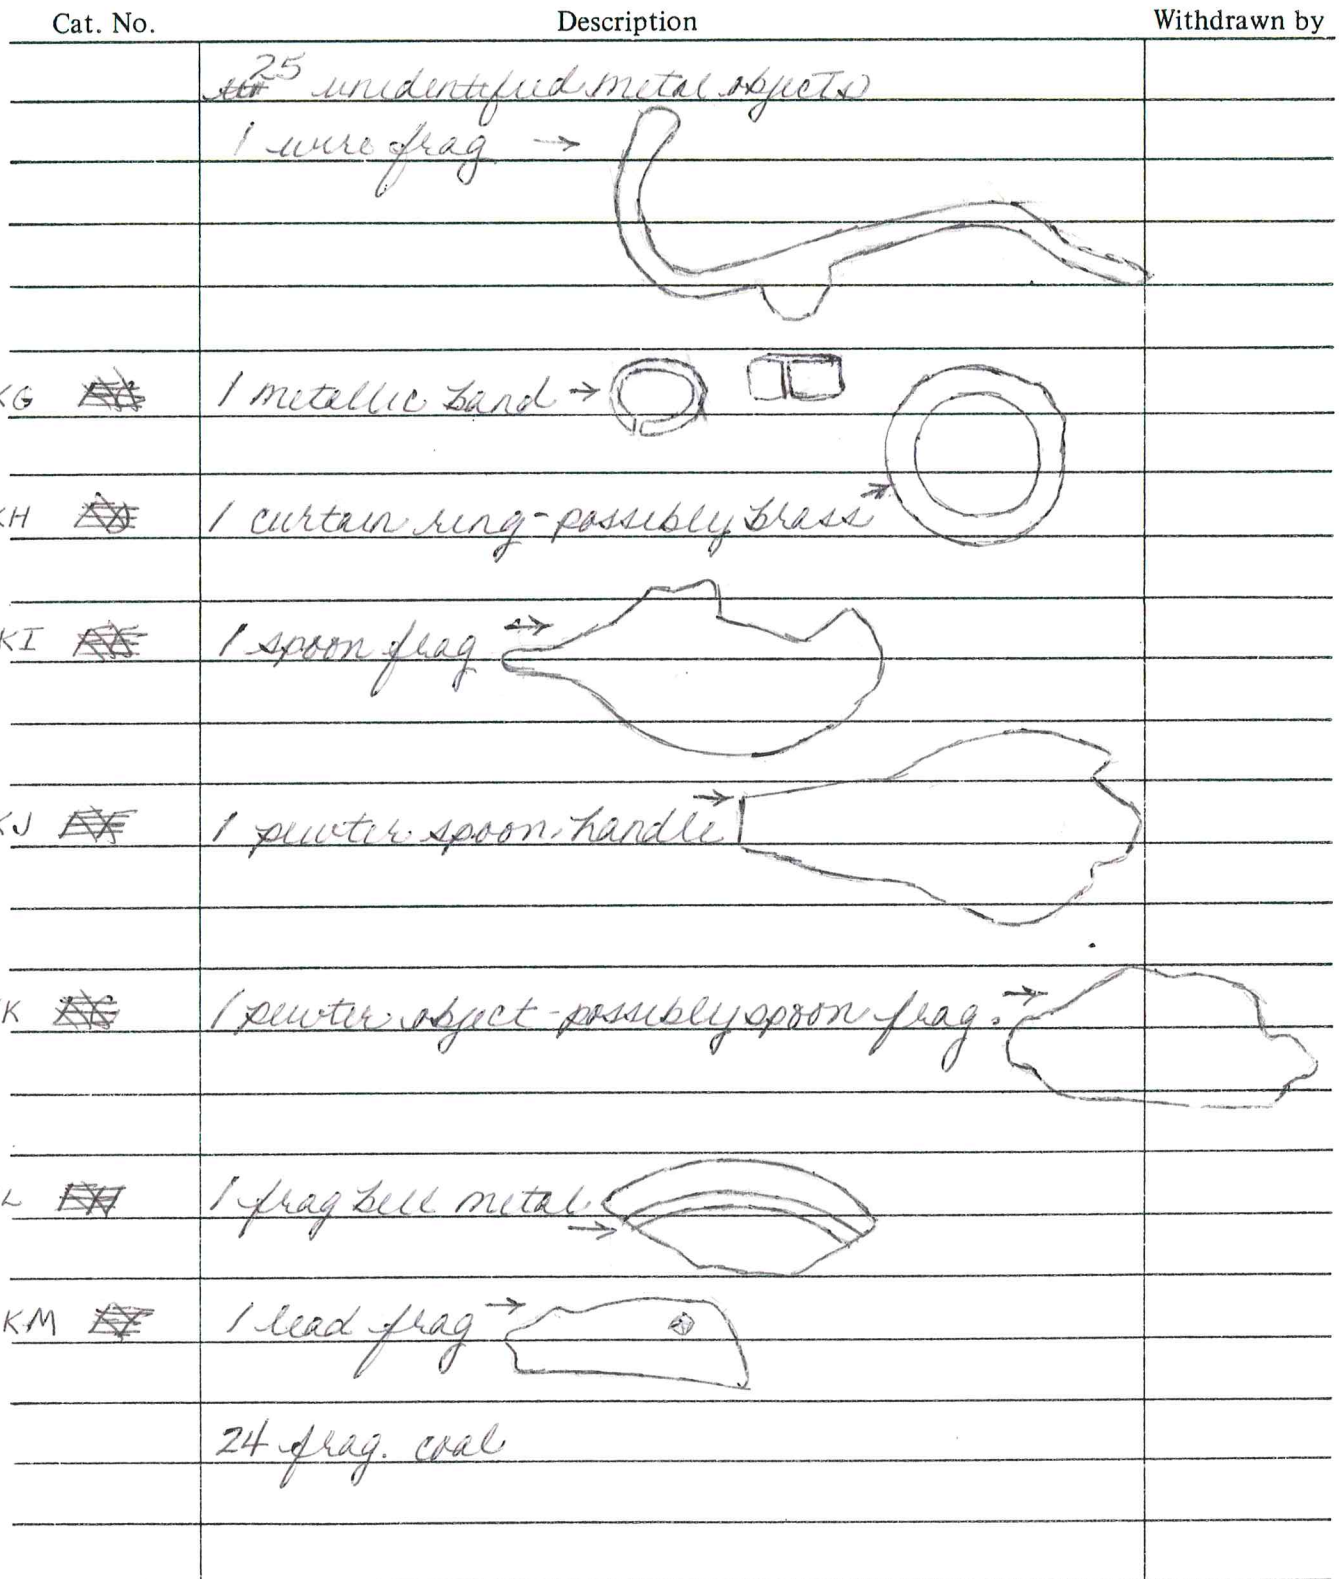 Cat. No. Description Withdrawn by
25 unidentified metal objects
1 wire frag →
KG 1 metallic band →
KH 1 curtain ring - possibly brass
KI 1 spoon frag →
KJ 1 pewter spoon handle →
K 1 pewter object - possibly spoon frag. →
L 1 frag bell metal →
KM 1 lead frag →
24 frag. coal